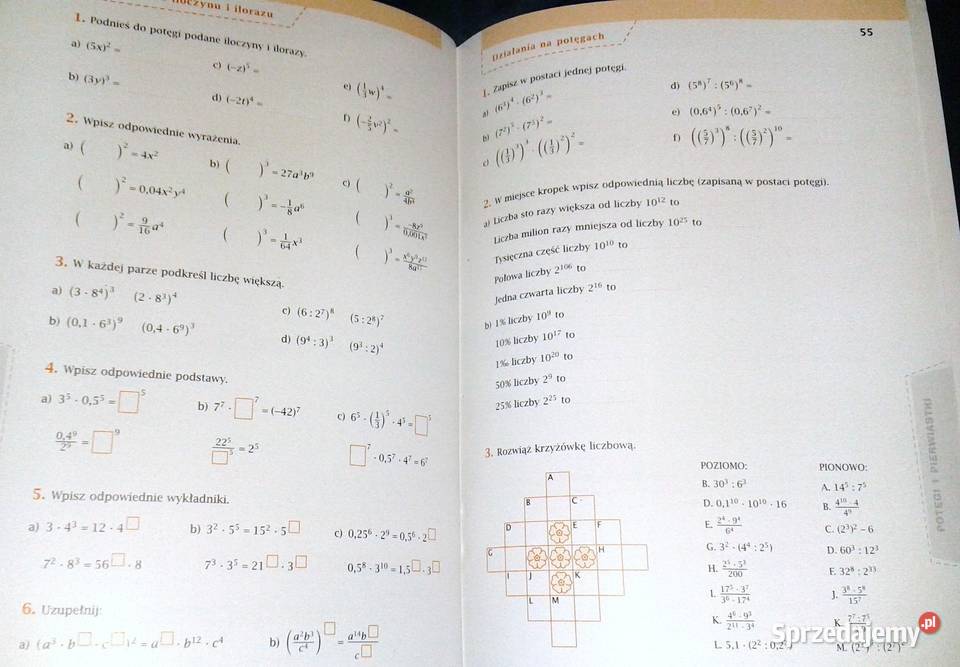 iloczynu i ilorazu
1. Podnieś do potęgi podane iloczyny i ilorazy.
a) (5x)² =
c) (−z)⁵ =
e) (1/3 w)⁴ =
b) (3y)³ =
d) (−2t)⁴ =
f) (−2/5 v²)² =
2. Wpisz odpowiednie wyrażenia.
a) ( )² = 4x²
b) ( )³ = 27a³b⁹
c) ( )² =
( )² = 0,04x²y⁴
( )³ = −1/8 a⁶
( )³ =
( )² = 9/16 a⁴
( )³ = 1/64 x³
( )³ =
3. W każdej parze podkreśl liczbę większą.
a) (3 · 8⁴)³ (2 · 8³)⁴
c) (6 : 2⁷)⁸ (5 : 2⁸)⁷
b) (0,1 · 6³)⁹ (0,4 · 6⁹)³
d) (9⁴ : 3)³ (9³ : 2)⁴
4. Wpisz odpowiednie podstawy.
a) 3⁵ · 0,5⁵ = □⁵
b) 7⁷ · □⁷ = (−42)⁷
c) 6⁵ · (1/3)⁵ · 4⁵ = □⁵
0,4⁹/2⁹ = □⁹
22⁵/□⁵ = 2⁵
□⁷ · 0,5⁷ · 4⁷ = 6⁷
5. Wpisz odpowiednie wykładniki.
a) 3 · 4³ = 12 · 4□
b) 3² · 5⁵ = 15² · 5□
c) 0,25⁶ · 2⁹ = 0,5⁶ · 2□
7² · 8³ = 56□ · 8
7³ · 3⁵ = 21□ · 3□
0,5⁸ · 3¹⁰ = 1,5□ · 3□
6. Uzupełnij:
a) (a³ · b□ · c□)² = a□ · b¹² · c⁴
b) (a²b³/c⁴)□ = a¹⁴b□/c□
Działania na potęgach
55
1. Zapisz w postaci jednej potęgi.
a) (6³)⁴ · (6²)³ =
d) (5⁸)⁷ : (5⁶)⁸ =
b) (7²)⁵ · (7⁵)² =
e) (0,6⁴)⁵ : (0,6⁷)² =
c) ((1/3)³)³ · ((1/3)²)² =
f) ((5/7)³)⁸ : ((5/7)²)¹⁰ =
2. W miejsce kropek wpisz odpowiednią liczbę (zapisaną w postaci potęgi).
a) Liczba sto razy większa od liczby 10¹² to
Liczba milion razy mniejsza od liczby 10²⁵ to
Tysięczna część liczby 10¹⁰ to
Połowa liczby 2¹⁰⁶ to
Jedna czwarta liczby 2¹⁶ to
b) 1% liczby 10⁹ to
10% liczby 10¹⁷ to
1‰ liczby 10²⁰ to
50% liczby 2⁹ to
25% liczby 2²⁵ to
3. Rozwiąż krzyżówkę liczbową.
A
B C
D E F
G H
I J K
L M
POZIOMO:
B. 30³ : 6³
D. 0,1¹⁰ · 10¹⁰ · 16
E. 2⁴ · 9⁴/6⁴
G. 3² · (4⁴ : 2⁵)
H. 2⁵ · 5³/200
I. 17⁵ · 3⁷/3⁶ · 17⁴
K. 4⁶ · 9³/2¹¹ · 3⁴
L. 5,1 · (2² : 0,2
PIONOWO:
A. 14⁵ : 7⁵
B. 4¹⁰ · 4/4⁹
C. (2³)² − 6
D. 60³ : 12³
F. 32⁸ : 2³³
J. 3⁸ · 5⁸/15⁷
K.
M.
POTĘGI I PIERWIASTKI
Sprzedajemy.pl